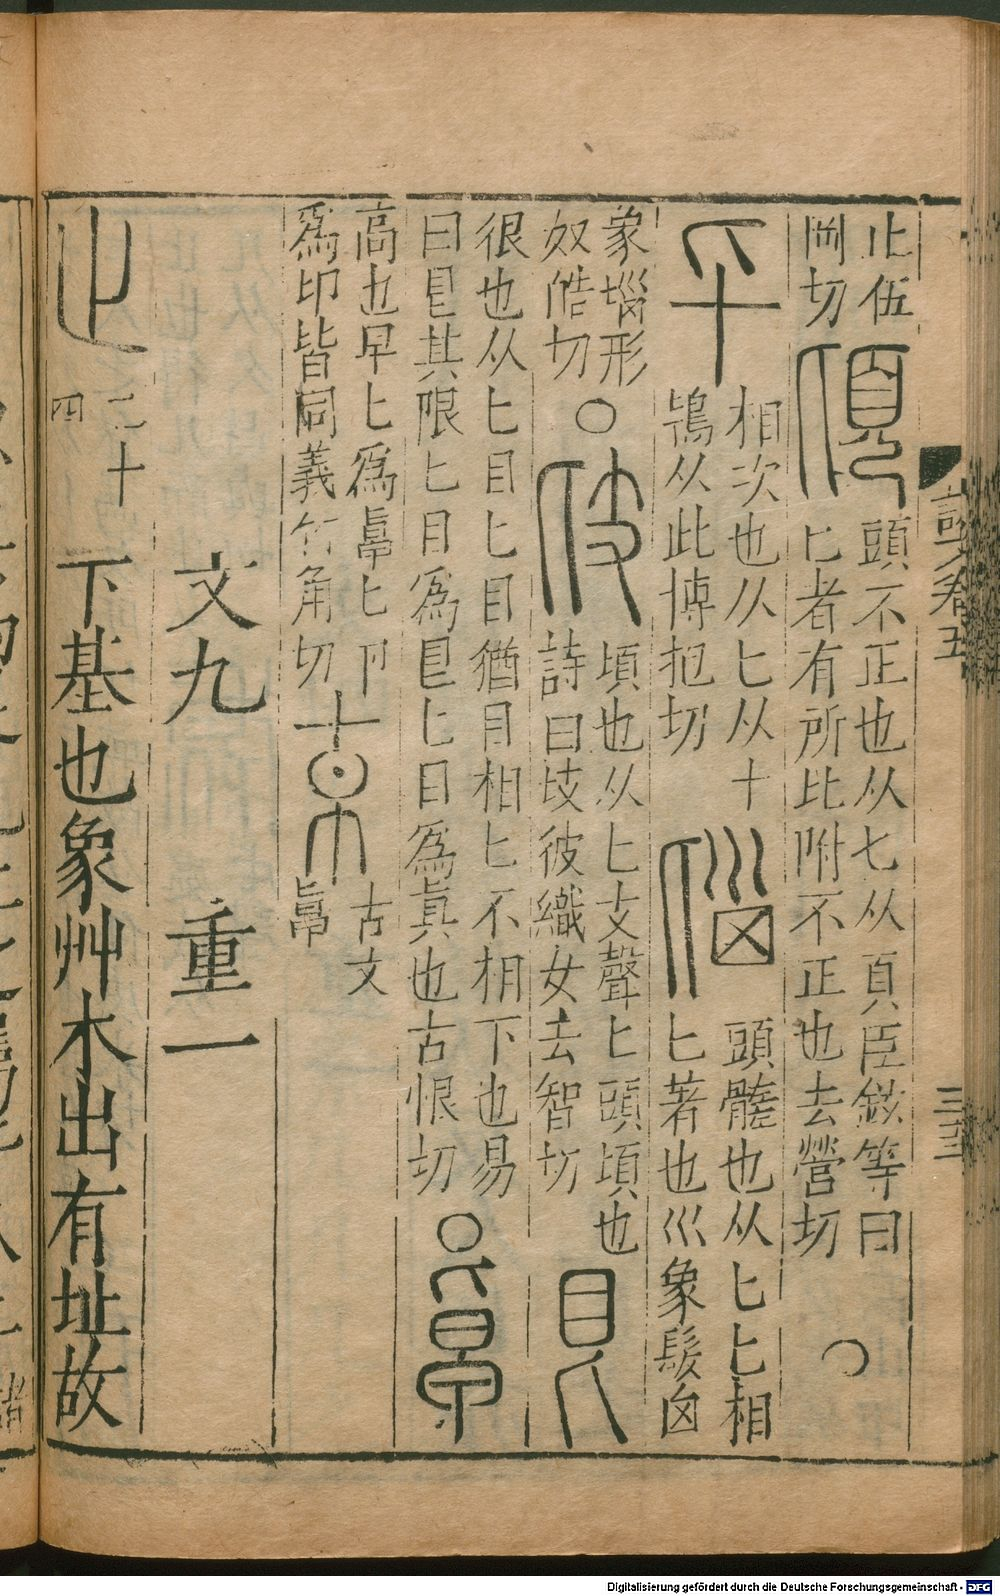 止伍
岡切
頭不正也从匕从頁臣鉉等曰
匕者有所比附不正也去營切
相次也从匕从十
鴇从此博抱切
頭髓也从匕匕相
匕著也巛象髮囟
象𡿺形
奴皓切〇
頃也从匕支聲匕頭頃也
詩曰歧彼織女去智切
很也从匕目匕目猶目相匕不相下也易
曰皀其限匕目為皀匕目為眞也古恨切〇
高也早匕為𠦝匕卩
為印皆同義竹角切
古文
𠦝
文九 重一
二十
四
下基也象艸木出有址故
說文卷五
三十三
Digitalisierung gefördert durch die Deutsche Forschungsgemeinschaft - DFG